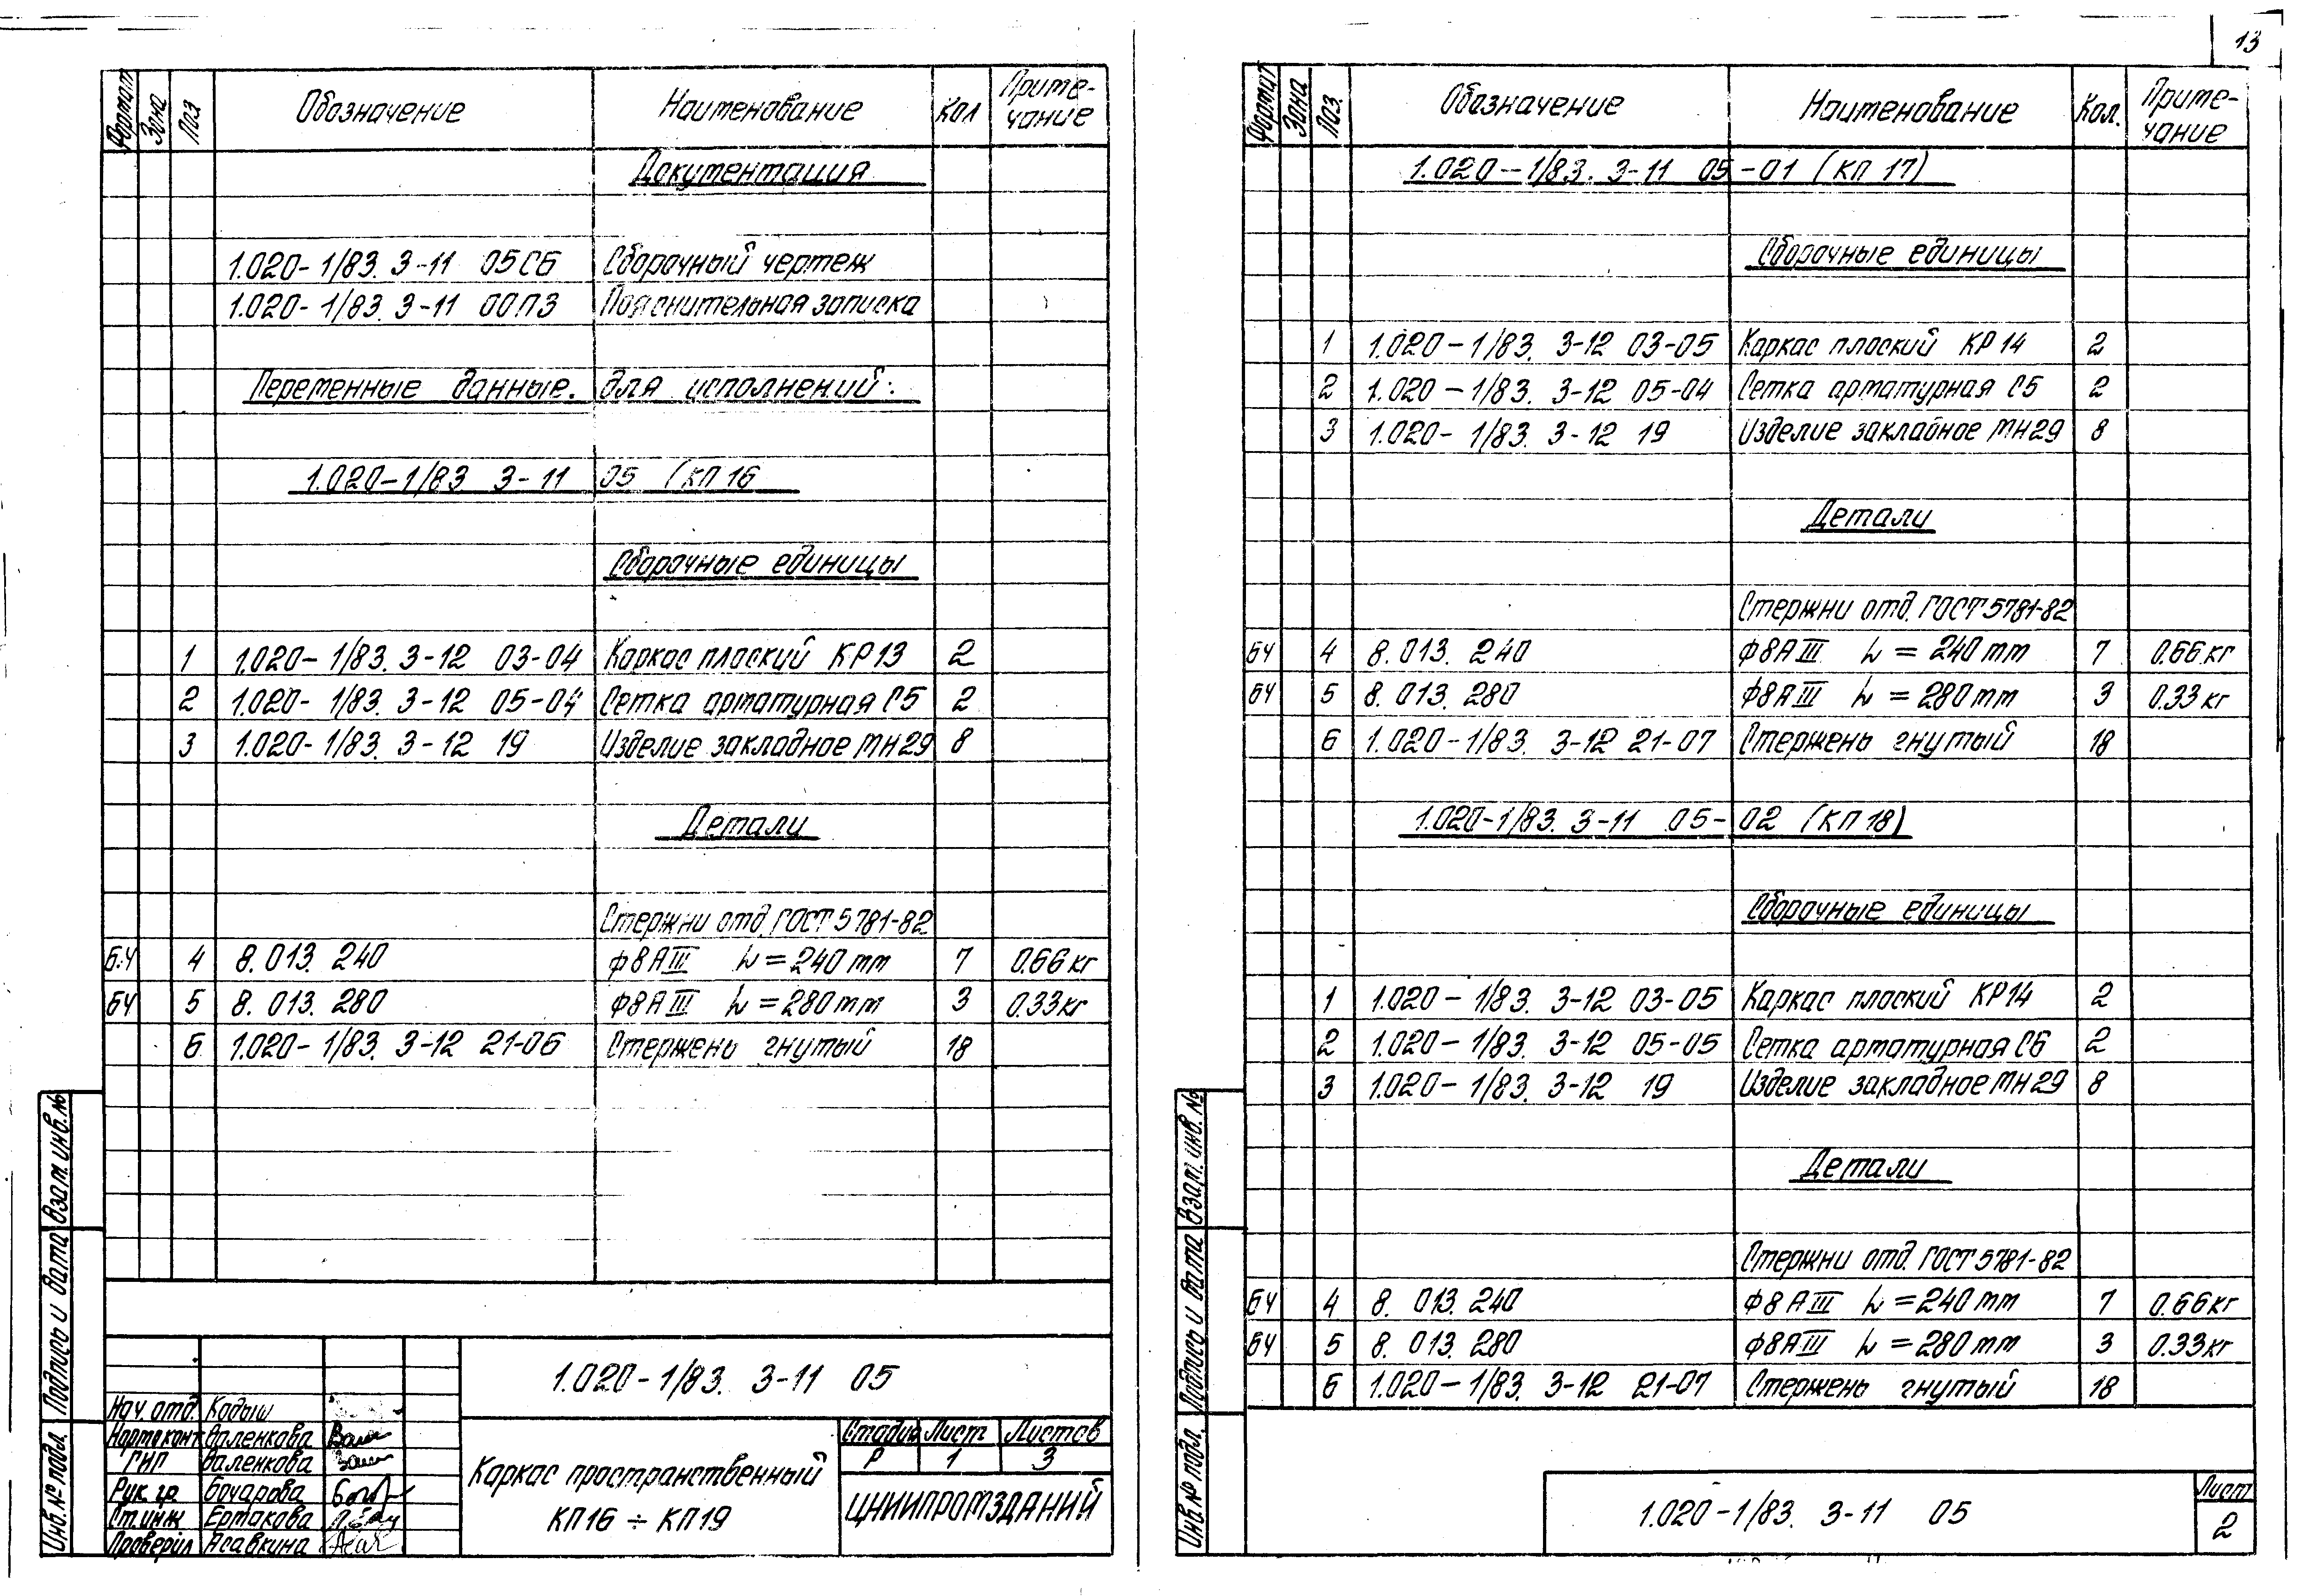 13
Формат Зона Поз Обозначение Наименование Кол Приме-
чание
Документация
1.020-1/83. 3-11 05СБ Сборочный чертеж
1.020-1/83. 3-11 00ПЗ Пояснительная записка
Переменные данные. для исполнений:
1.020-1/83 3-11 05 (КП 16
Сборочные единицы
1 1.020-1/83. 3-12 03-04 Каркас плоский КР13 2
2 1.020-1/83. 3-12 05-04 Сетка арматурная С5 2
3 1.020-1/83. 3-12 19 Изделие закладное МН29 8
Детали
Стержни отд. ГОСТ 5781-82
БЧ 4 8.013.240 Ф8АIII L=240мм 7 0.66кг
БЧ 5 8.013.280 Ф8АIII L=280мм 3 0.33кг
6 1.020-1/83. 3-12 21-06 Стержень гнутый 18
Взам. инв. №
Подпись и дата
Инв. № подл.
1.020-1/83. 3-11 05
Нач. отд. Кодыш
Норм контр Валенкова
ГИП Валенкова
Рук. гр. Бочарова
Ст. инж Ермакова
Проверил Асавкина
Каркас пространственный
КП16 ÷ КП19
Стадия Лист Листов
Р 1 3
ЦНИИПРОМЗДАНИЙ
Формат Зона Поз. Обозначение Наименование Кол. Приме-
чание
1.020-1/83. 3-11 05-01 (КП 17)
Сборочные единицы
1 1.020-1/83. 3-12 03-05 Каркас плоский КР14 2
2 1.020-1/83. 3-12 05-04 Сетка арматурная С5 2
3 1.020-1/83. 3-12 19 Изделие закладное МН29 8
Детали
Стержни отд. ГОСТ 5781-82
БЧ 4 8.013.240 Ф8АIII L=240мм 7 0.66кг
БЧ 5 8.013.280 Ф8АIII L=280мм 3 0.33кг
6 1.020-1/83. 3-12 21-07 Стержень гнутый 18
1.020-1/83. 3-11 05-02 (КП 18)
Сборочные единицы
1 1.020-1/83. 3-12 03-05 Каркас плоский КР14 2
2 1.020-1/83. 3-12 05-05 Сетка арматурная С6 2
3 1.020-1/83. 3-12 19 Изделие закладное МН29 8
Детали
Стержни отд. ГОСТ 5781-82
БЧ 4 8.013.240 Ф8АIII L=240мм 7 0.66кг
БЧ 5 8.013.280 Ф8АIII L=280мм 3 0.33кг
6 1.020-1/83. 3-12 21-07 Стержень гнутый 18
Взам. инв. №
Подпись и дата
Инв. № подл.
1.020-1/83. 3-11 05
Лист
2